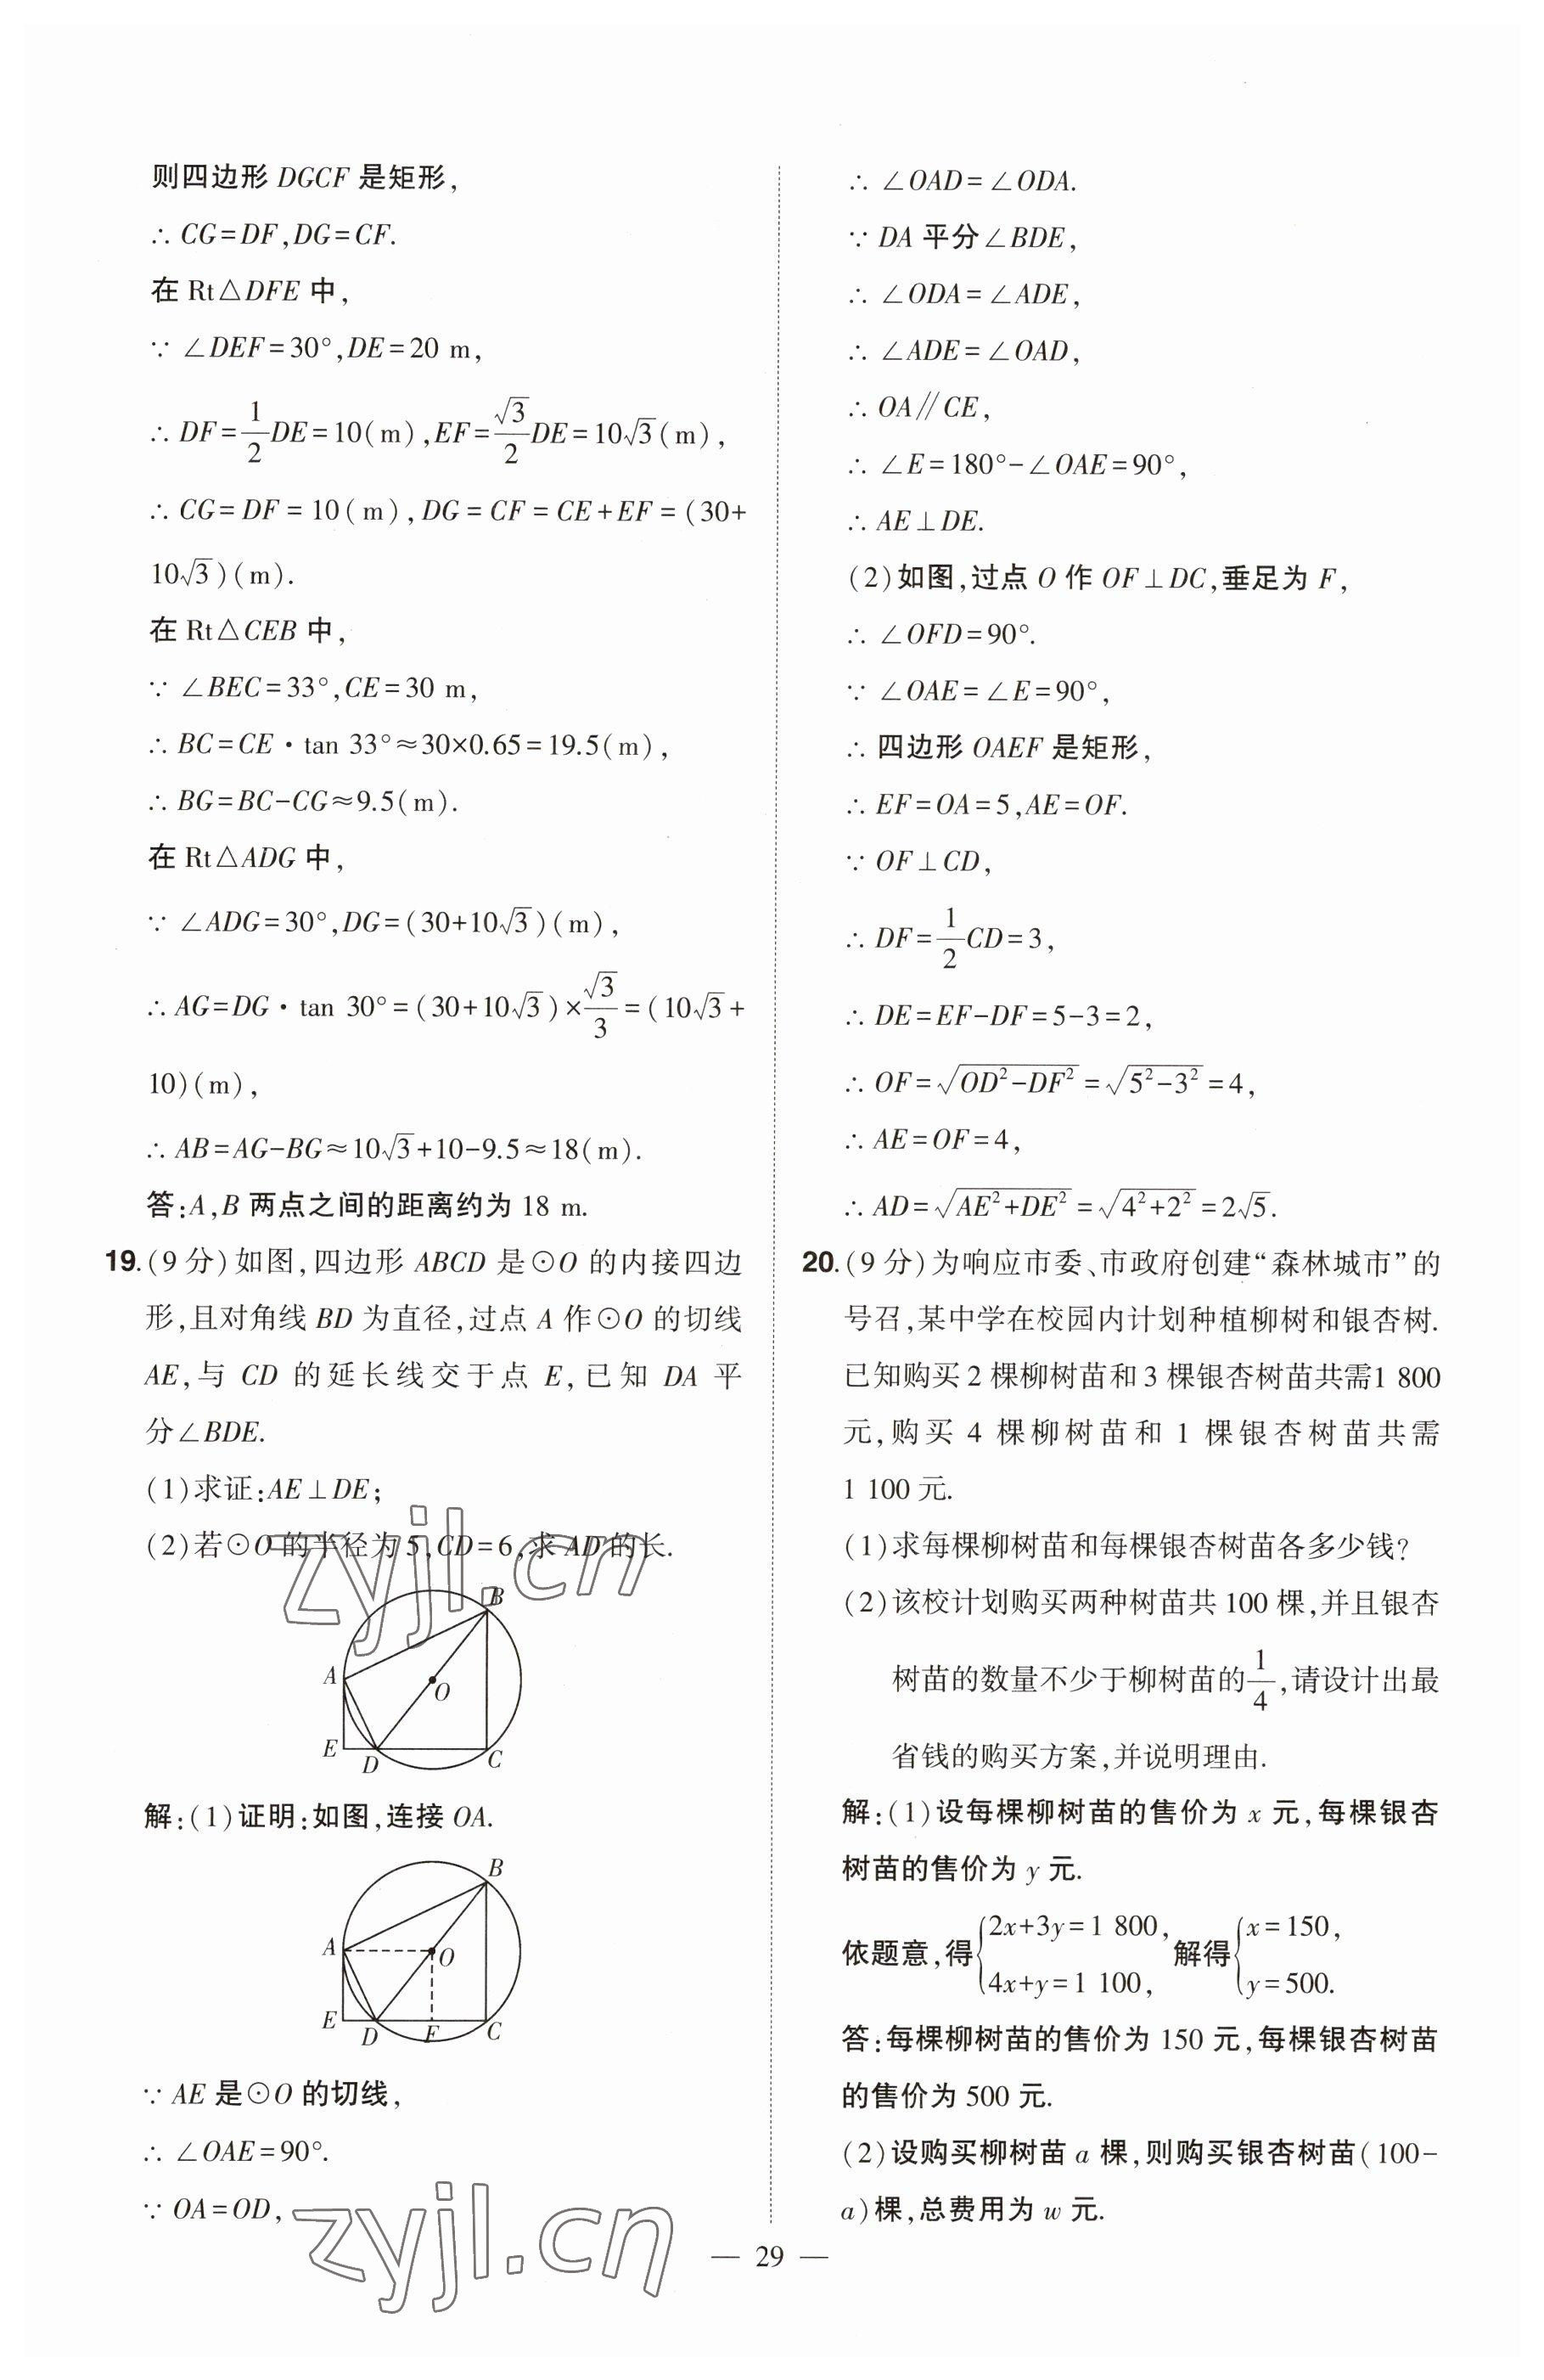 则四边形 DGCF 是矩形,
∴ CG=DF,DG=CF.
在 Rt△DFE 中,
∵ ∠DEF=30°,DE=20 m,
∴ DF=1/2DE=10(m),EF=√3/2DE=10√3(m),
∴ CG=DF=10(m),DG=CF=CE+EF=(30+
10√3)(m).
在 Rt△CEB 中,
∵ ∠BEC=33°,CE=30 m,
∴ BC=CE·tan 33°≈30×0.65=19.5(m),
∴ BG=BC-CG≈9.5(m).
在 Rt△ADG 中,
∵ ∠ADG=30°,DG=(30+10√3)(m),
∴ AG=DG·tan 30°=(30+10√3)×√3/3=(10√3+
10)(m),
∴ AB=AG-BG≈10√3+10-9.5≈18(m).
答:A,B 两点之间的距离约为 18 m.
19.(9分)如图,四边形 ABCD 是⊙O 的内接四边
形,且对角线 BD 为直径,过点 A 作⊙O 的切线
AE,与 CD 的延长线交于点 E,已知 DA 平
分∠BDE.
(1)求证:AE⊥DE;
(2)若⊙O 的半径为 5,CD=6,求 AD 的长.
zyjl.cn
B
A
O
E
D
C
解:(1)证明:如图,连接 OA.
B
A
O
E
D
F
C
∵ AE 是⊙O 的切线,
∴ ∠OAE=90°.
∵ OA=OD,
zyjl.cn
∴ ∠OAD=∠ODA.
∵ DA 平分∠BDE,
∴ ∠ODA=∠ADE,
∴ ∠ADE=∠OAD,
∴ OA∥CE,
∴ ∠E=180°-∠OAE=90°,
∴ AE⊥DE.
(2)如图,过点 O 作 OF⊥DC,垂足为 F,
∴ ∠OFD=90°.
∵ ∠OAE=∠E=90°,
∴ 四边形 OAEF 是矩形,
∴ EF=OA=5,AE=OF.
∵ OF⊥CD,
∴ DF=1/2CD=3,
∴ DE=EF-DF=5-3=2,
∴ OF=√(OD²-DF²)=√(5²-3²)=4,
∴ AE=OF=4,
∴ AD=√(AE²+DE²)=√(4²+2²)=2√5.
20.(9分)为响应市委、市政府创建“森林城市”的
号召,某中学在校园内计划种植柳树和银杏树.
已知购买 2 棵柳树苗和 3 棵银杏树苗共需1 800
元,购买 4 棵柳树苗和 1 棵银杏树苗共需
1 100 元.
(1)求每棵柳树苗和每棵银杏树苗各多少钱?
(2)该校计划购买两种树苗共 100 棵,并且银杏
树苗的数量不少于柳树苗的1/4,请设计出最
省钱的购买方案,并说明理由.
解:(1)设每棵柳树苗的售价为 x 元,每棵银杏
树苗的售价为 y 元.
依题意,得{2x+3y=1 800, 4x+y=1 100, 解得{x=150, y=500.
答:每棵柳树苗的售价为 150 元,每棵银杏树苗
的售价为 500 元.
(2)设购买柳树苗 a 棵,则购买银杏树苗(100-
a)棵,总费用为 w 元.
— 29 —